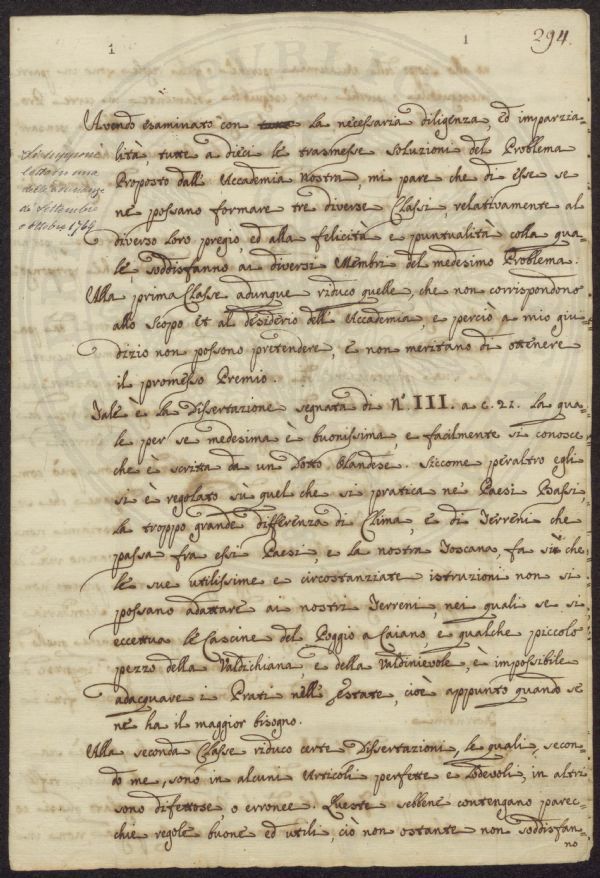 1
1
294.
Avendo esaminato con tutte la necessaria diligenza, ed imparzia-
lità tutte a dieci le trasmesse soluzioni del Problema
Proposto dall' Accademia nostra, mi pare che di esse se
ne possano formare tre diverse Classi, relativamente al
diverso loro pregio, ed alla felicità e puntualità colla qua-
le, soddisfanno ai diversi Membri del medesimo Problema.
Si suppone
letto in una
delle adunanze
di Settembre
o ottobre 1769
Alla prima Classe adunque riduco quelle, che non corrispondono
allo scopo et al desiderio dell' Accademia, e perciò a mio giu-
dizio non possono pretendere, e non meritano di ottenere
il promesso Premio.
Tale è la Dissertazione segnata di N.º III. a c. 21. la qua-
le per se medesima è buonissima, e facilmente si conosce
che è scritta da un Dotto Olandese. Siccome peraltro egli
si è regolato sù quel che si pratica ne' Paesi Bassi,
la troppo grande differenza di Clima, e di Terreni che
passa fra essi Paesi, e la nostra Toscana, fa sì che
le sue utilissime e circostanziate istruzioni non si
possano adattare ai nostri Terreni, nei quali se si
eccettua le Cascine del Poggio a Caiano, e qualche piccolo
pezzo della Valdichiana, e della Valdinievole, è impossibile
adacquare i Prati nell' Estate, cioè appunto quando se
ne ha il maggior bisogno.
Alla seconda Classe riduco certe Dissertazioni, le quali, secon-
do me, sono in alcuni Articoli perfette e lodevoli, in altri
sono difettose o erronee. Queste sebbene contengano parec-
chie regole buone ed utili, ciò non ostante non soddisfan-
no